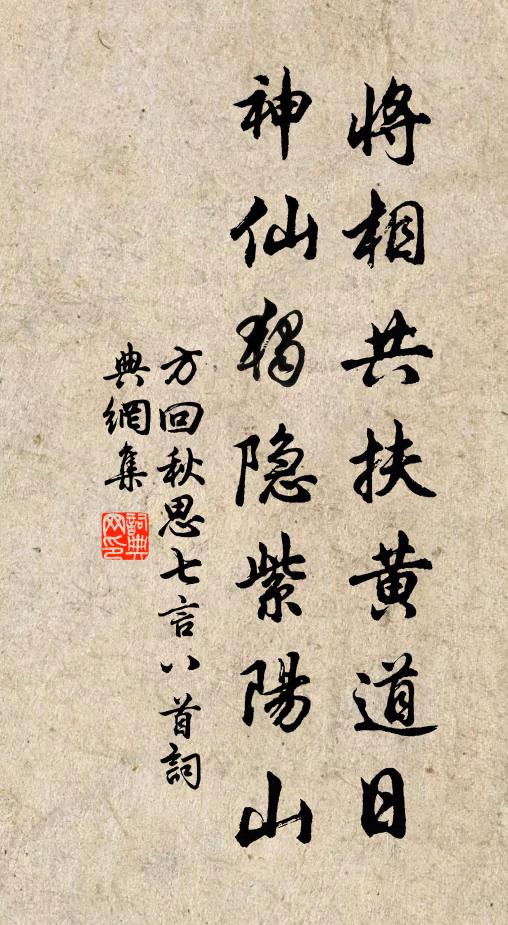 將相共扶黄道日
神仙獨隐紫陽山
方回秋思七言八首詞
典網集
詞典网印